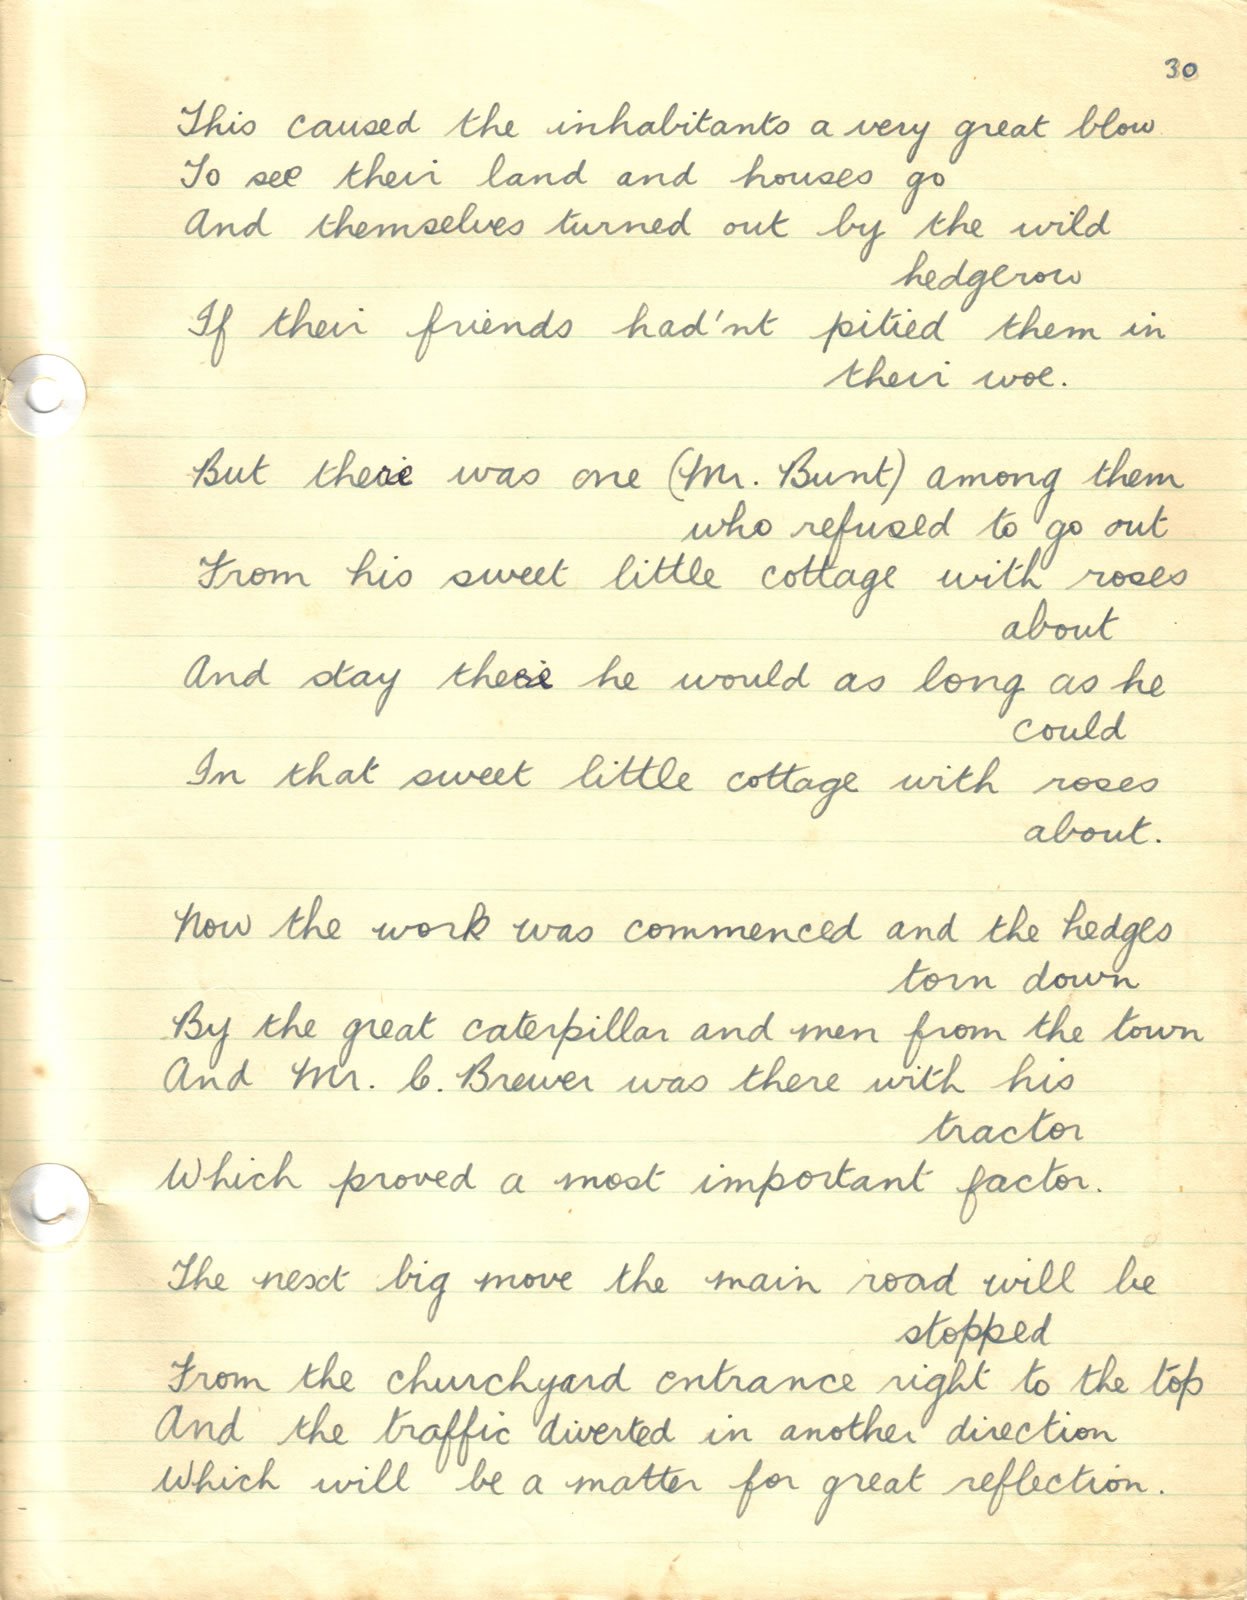 30
This caused the inhabitants a very great blow
To see their land and houses go
And themselves turned out by the wild
hedgerow
If their friends had'nt pitied them in
their woe.
But there was one (Mr. Bunt) among them
who refused to go out
From his sweet little cottage with roses
about
And stay there he would as long as he
could
In that sweet little cottage with roses
about.
Now the work was commenced and the hedges
torn down
By the great caterpillar and men from the town
And Mr. C. Brewer was there with his
tractor
Which proved a most important factor.
The next big move the main road will be
stopped
From the churchyard entrance right to the top
And the traffic diverted in another direction
Which will be a matter for great reflection.